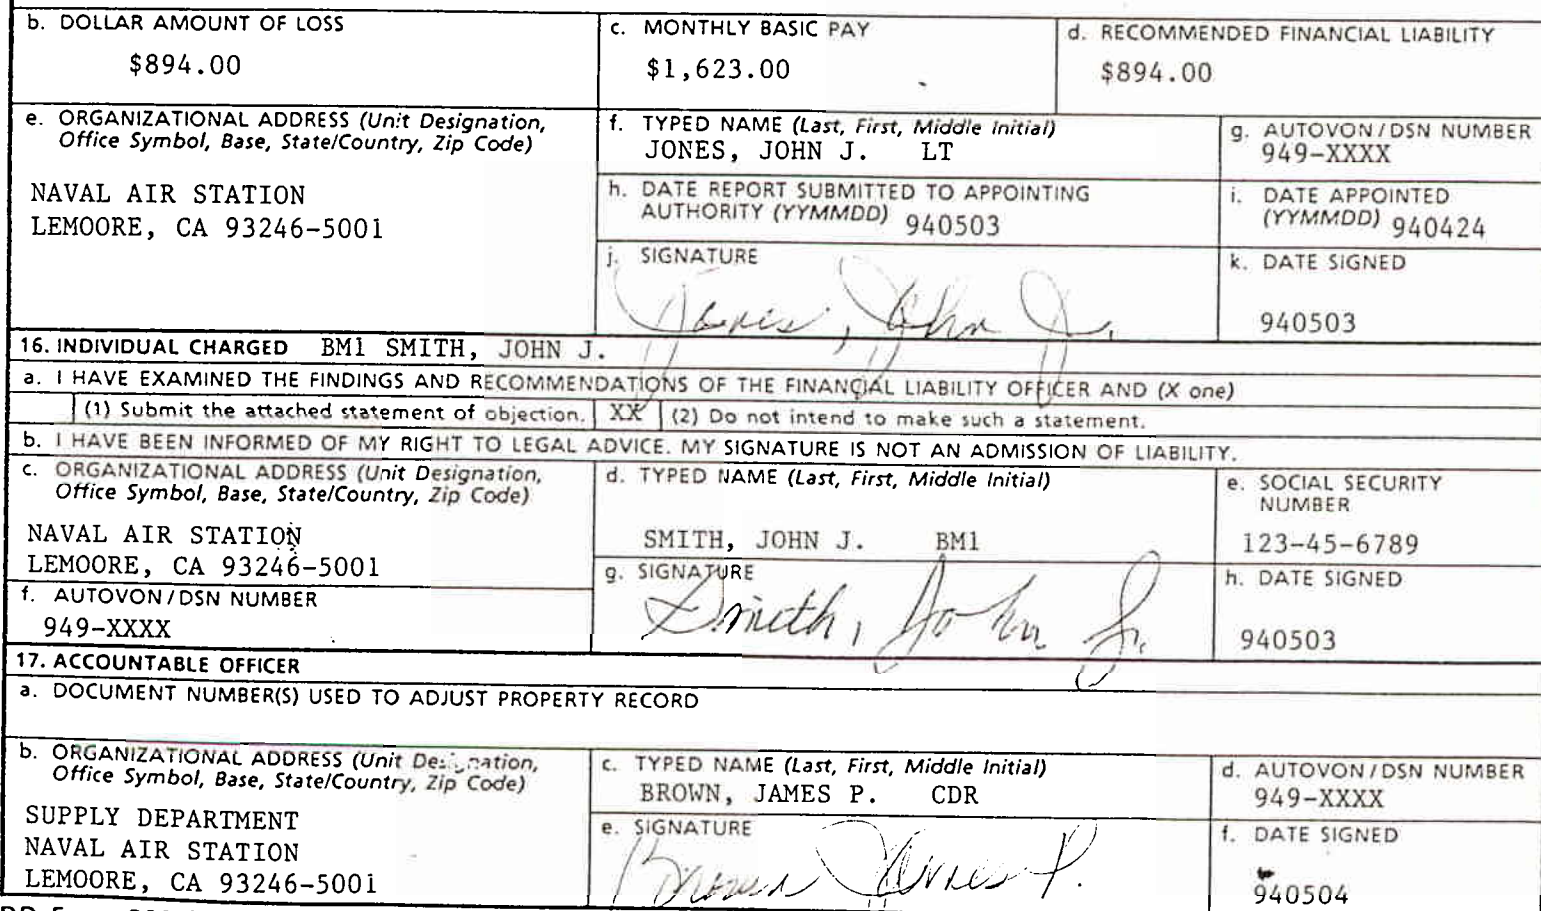 b. DOLLAR AMOUNT OF LOSS
$894.00
c. MONTHLY BASIC PAY
$1,623.00
d. RECOMMENDED FINANCIAL LIABILITY
$894.00
e. ORGANIZATIONAL ADDRESS (Unit Designation,
Office Symbol, Base, State/Country, Zip Code)
NAVAL AIR STATION
LEMOORE, CA 93246-5001
f. TYPED NAME (Last, First, Middle Initial)
JONES, JOHN J. LT
g. AUTOVON/DSN NUMBER
949-XXXX
h. DATE REPORT SUBMITTED TO APPOINTING
AUTHORITY (YYMMDD) 940503
i. DATE APPOINTED
(YYMMDD) 940424
j. SIGNATURE
Jones, John J.
k. DATE SIGNED
940503
16. INDIVIDUAL CHARGED BM1 SMITH, JOHN J.
a. I HAVE EXAMINED THE FINDINGS AND RECOMMENDATIONS OF THE FINANCIAL LIABILITY OFFICER AND (X one)
(1) Submit the attached statement of objection. XX (2) Do not intend to make such a statement.
b. I HAVE BEEN INFORMED OF MY RIGHT TO LEGAL ADVICE. MY SIGNATURE IS NOT AN ADMISSION OF LIABILITY.
c. ORGANIZATIONAL ADDRESS (Unit Designation,
Office Symbol, Base, State/Country, Zip Code)
NAVAL AIR STATION
LEMOORE, CA 93246-5001
d. TYPED NAME (Last, First, Middle Initial)
SMITH, JOHN J. BM1
e. SOCIAL SECURITY
NUMBER
123-45-6789
f. AUTOVON/DSN NUMBER
949-XXXX
g. SIGNATURE
Smith, John J.
h. DATE SIGNED
940503
17. ACCOUNTABLE OFFICER
a. DOCUMENT NUMBER(S) USED TO ADJUST PROPERTY RECORD
b. ORGANIZATIONAL ADDRESS (Unit Designation,
Office Symbol, Base, State/Country, Zip Code)
SUPPLY DEPARTMENT
NAVAL AIR STATION
LEMOORE, CA 93246-5001
c. TYPED NAME (Last, First, Middle Initial)
BROWN, JAMES P. CDR
d. AUTOVON/DSN NUMBER
949-XXXX
e. SIGNATURE
Brown James P.
f. DATE SIGNED
940504